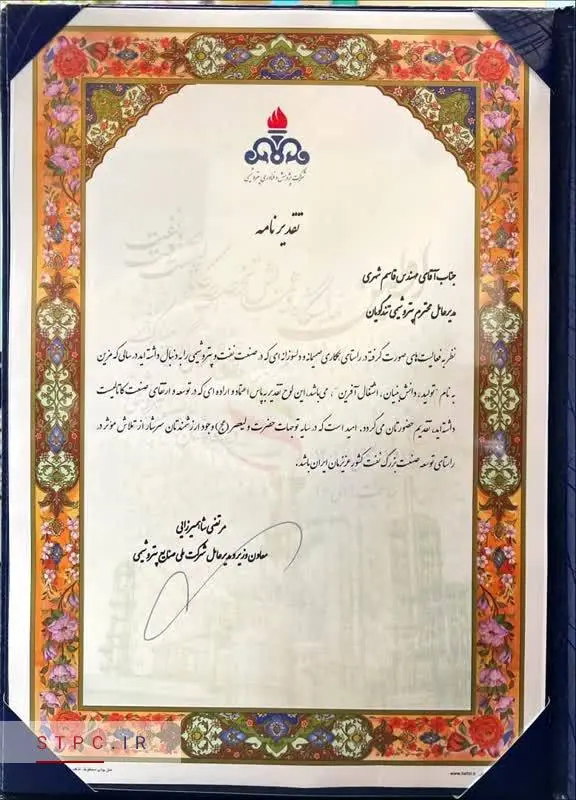 شرکت پژوهش و فناوری پتروشیمی
تقدیر نامه
جناب آقای مهندس قاسم شهری
مدیرعامل محترم پتروشیمی تندگویان
نظر به فعالیت‌های صورت گرفته در راستای همکاری صمیمانه و دلسوزانه ای که در صنعت نفت و پتروشیمی را به دنبال داشته اید در سالی که مزین
به نام "تولید، دانش بنیان، اشتغال آفرین"، می‌باشد، این لوح تقدیر به پاس اعتماد و اراده ای که در توسعه و ارتقای صنعت کاتالیست
داشته‌اید، تقدیم حضورتان می گردد. امید است که در سایه توجهات حضرت ولیعصر (عج) وجود ارزشمندتان سرشار از تلاش موثر در
راستای توسعه صنعت بزرگ نفت کشور عزیزمان ایران باشد.
مرتضی شاهمیرزایی
معاون وزیر و مدیرعامل شرکت ملی صنایع پتروشیمی
STPC.IR